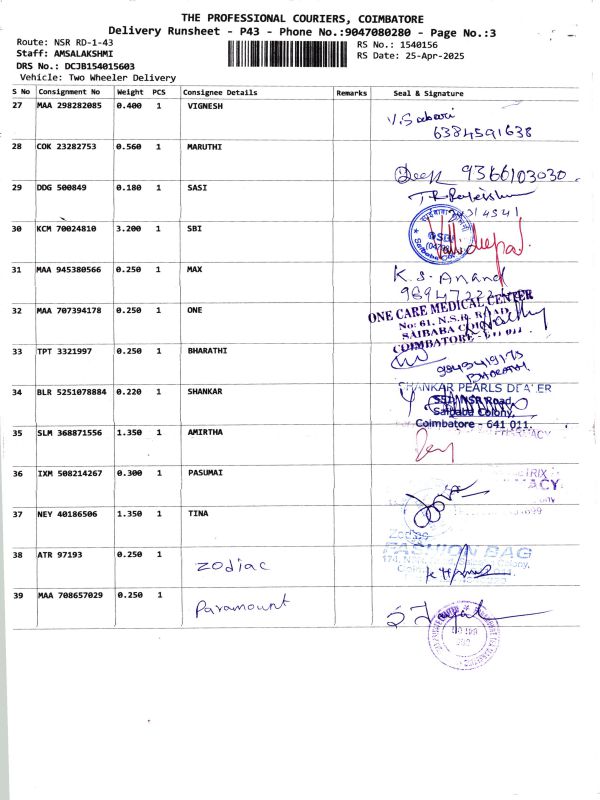 THE PROFESSIONAL COURIERS, COIMBATORE
Delivery Runsheet - P43 - Phone No.:9047080280 - Page No.:3
Route: NSR RD-1-43
RS No.: 1540156
Staff: AMSALAKSHMI
RS Date: 25-Apr-2025
DRS No.: DCJB154015603
Vehicle: Two Wheeler Delivery
S No Consignment No Weight PCS Consignee Details Remarks Seal & Signature
27 MAA 298282085 0.400 1 VIGNESH
V. Sabari
6384591638
28 COK 23282753 0.560 1 MARUTHI
9366103030
29 DDG 500849 0.180 1 SASI
30 KCM 70024810 3.200 1 SBI
31 MAA 945380566 0.250 1 MAX
K.S. Anand
32 MAA 707394178 0.250 1 ONE
ONE CARE MEDICAL CENTER
No: 61, N.S.R. ROAD
SAIBABA
COIMBATORE
33 TPT 3321997 0.250 1 BHARATHI
34 BLR 5251078884 0.220 1 SHANKAR
SHANKAR PEARLS DEALER
NSR Road,
Saibaba Colony,
Coimbatore - 641 011.
35 SLM 368871556 1.350 1 AMIRTHA
36 IXM 508214267 0.300 1 PASUMAI
37 NEY 40186506 1.350 1 TINA
38 ATR 97193 0.250 1 Zodiac
Zodiac
FASHION BAG
39 MAA 708657029 0.250 1 Paramount